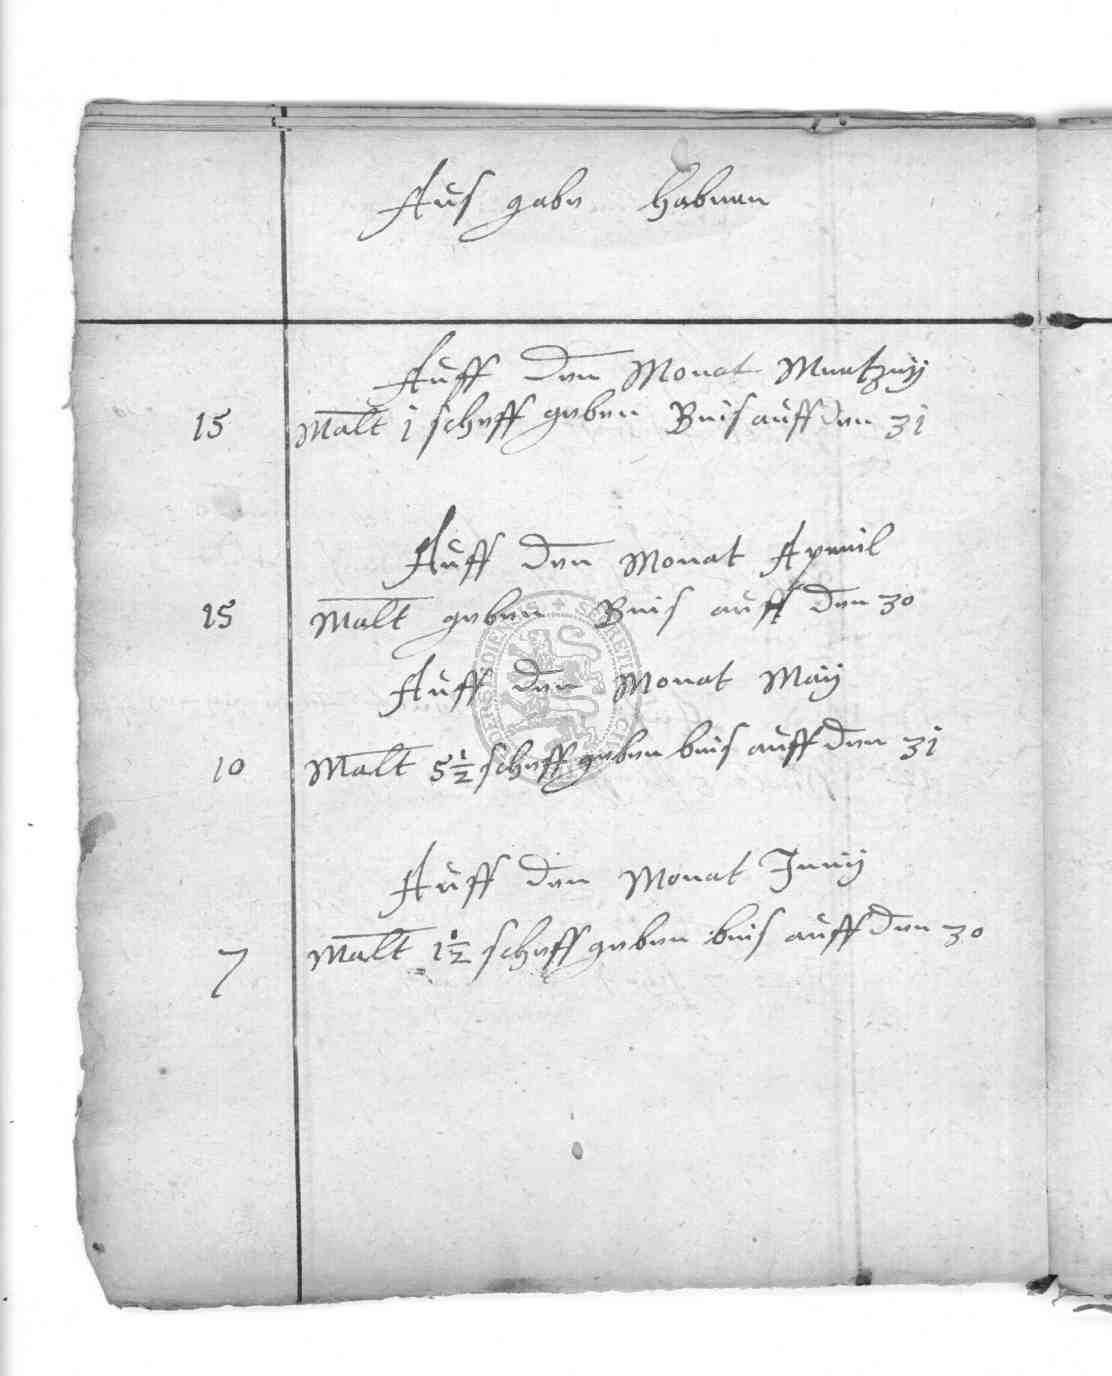 Ausgabe Habern
Auff den Monat Mertzeÿ
15 Malt 1 scheff geben Beis auff den 31
Auff den Monat Apreril
15 Malt geben Beis auff den 30
Auff den Monat Maÿ
10 Malt 5 1/2 scheff geben beis auff den 31
Auff den Monat Junÿ
7 Malt 1 1/2 scheff geben beis auff den 30